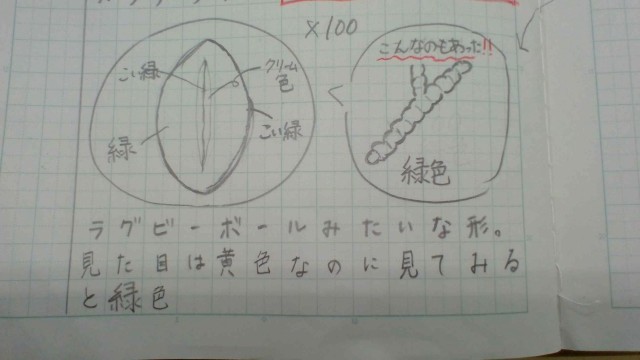 ×100
こんなのもあった!!
こい緑
クリーム色
緑
こい緑
緑色
ラグビーボールみたいな形。
見た目は黄色なのに見てみる
と緑色